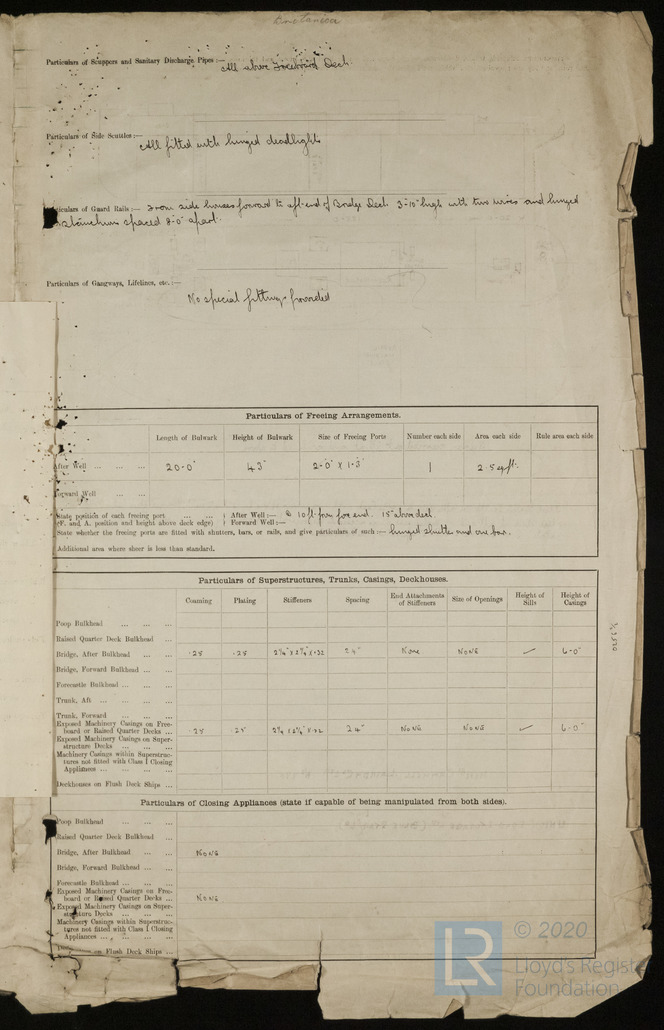 Particulars of Scuppers and Sanitary Discharge Pipes:— All above Freeboard Deck.
Particulars of Side Scuttles:— All fitted with hinged deadlights
Particulars of Guard Rails:— From side houses forward to aft end of Bridge Deck 3'-10" high with two wires and hinged
stanchions spaced 8'-0" apart.
Particulars of Gangways, Lifelines, etc.:— No special fittings provided
Particulars of Freeing Arrangements.
Length of Bulwark Height of Bulwark Size of Freeing Ports Number each side Area each side Rule area each side
After Well ... ... ... 20'-0" 43" 2'-0" x 1'-3" 1 2.5 sq ft.
Forward Well ... ...
State position of each freeing port ... ... ... } After Well:— 10 ft from fore end. 15" above deck
(F. and A. position and height above deck edge) } Forward Well:—
State whether the freeing ports are fitted with shutters, bars, or rails, and give particulars of such:— hinged shutter and one bar.
Additional area where sheer is less than standard.
Particulars of Superstructures, Trunks, Casings, Deckhouses.
Coaming Plating Stiffeners Spacing End Attachments of Stiffeners Size of Openings Height of Sills Height of Casings
Poop Bulkhead ... ... ...
Raised Quarter Deck Bulkhead ...
Bridge, After Bulkhead ... ... .25 .25 2¼" x 2¼" x .32 24" None NONE 6'-0"
Bridge, Forward Bulkhead ... ...
Forecastle Bulkhead ... ... ...
Trunk, Aft ... ... ... ...
Trunk, Forward ... ... ...
Exposed Machinery Casings on Free-
board or Raised Quarter Decks ... .25 .25 2¼ x 2¼" x .32 24" NONE NONE 6'-0"
Exposed Machinery Casings on Super-
structure Decks ... ... ...
Machinery Casings within Superstruc-
tures not fitted with Class I Closing
Appliances ... ... ... ...
Deckhouses on Flush Deck Ships ...
Particulars of Closing Appliances (state if capable of being manipulated from both sides).
Poop Bulkhead ... ... ...
Raised Quarter Deck Bulkhead ...
Bridge, After Bulkhead ... ... NONE
Bridge, Forward Bulkhead ... ...
Forecastle Bulkhead ... ... ...
Exposed Machinery Casings on Free-
board or Raised Quarter Decks ... NONE
Exposed Machinery Casings on Super-
structure Decks ... ... ...
Machinery Casings within Superstruc-
tures not fitted with Class I Closing
Appliances ... ... ... ...
on Flush Deck Ships ...
LR
© 2020
Lloyd's Register
Foundation